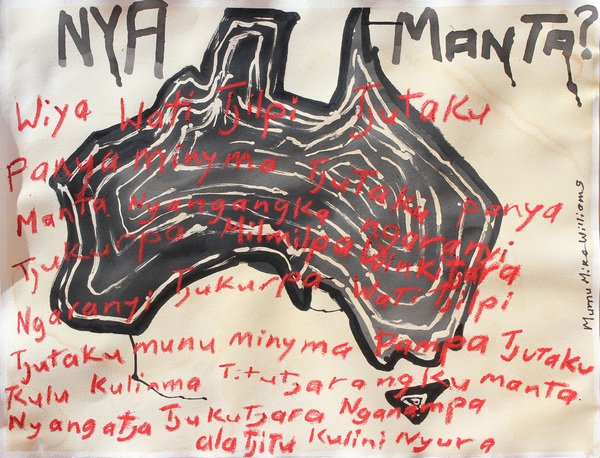 NYA MANTA?
Wiya Wati Tjilpi Tjutaku
Panya Minyma Tjutaku panya
Manta Nyangangka ngaranyi
Tjukurpa Milmilpa Winkitjara
Ngaranyi Tjukurpa Wati Tjilpi
Tjutaku munu minyma Pampa Tjutaku
Kulu Kulinma Titutjarangku manta
Nyangatja Tjukutjara Nganampa
alatjitu Kulini Nyura
Mumu Mike Williams